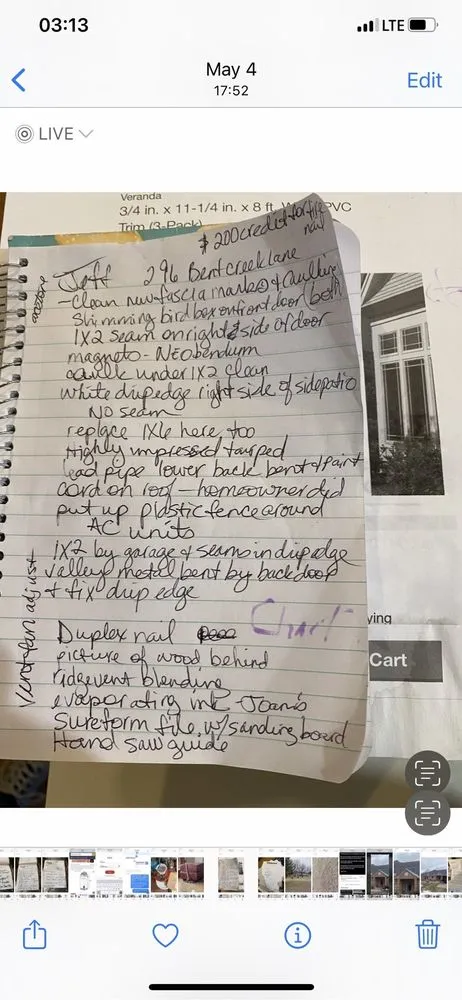 03:13
LTE
May 4
17:52
Edit
LIVE
Veranda
3/4 in. x 11-1/4 in. x 8 ft. PVC
Trim (3-Pack)
$200 credit for
nail
acetone
Jeff 296 Bentcreek lane
- clean new fascia marked & caulking
Shimming bird box on front door both
1X2 seam on right side of door
magneto - NEOdendum
caulk under 1X2 clean
white dripedge right side of sidepatio
NO seam
replace 1X6 here too
Highly impressed tarped
lead pipe lower back bent & paint
cord on roof - homeowner did
put up plastic fence around
AC units
1X2 by garage & seams in dripedge
valleys metal bent by backdoor
& fix drip edge
adjust
Duplex nail
picture of wood behind
ridgevent blending
evaporating ink Joann's
Sureform file w/ sanding board
Hand saw guide
ying
Cart